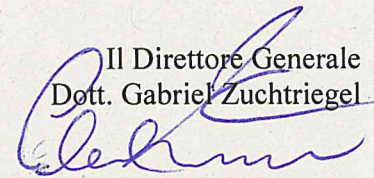 Il Direttore Generale
Dott. Gabriel Zuchtriegel